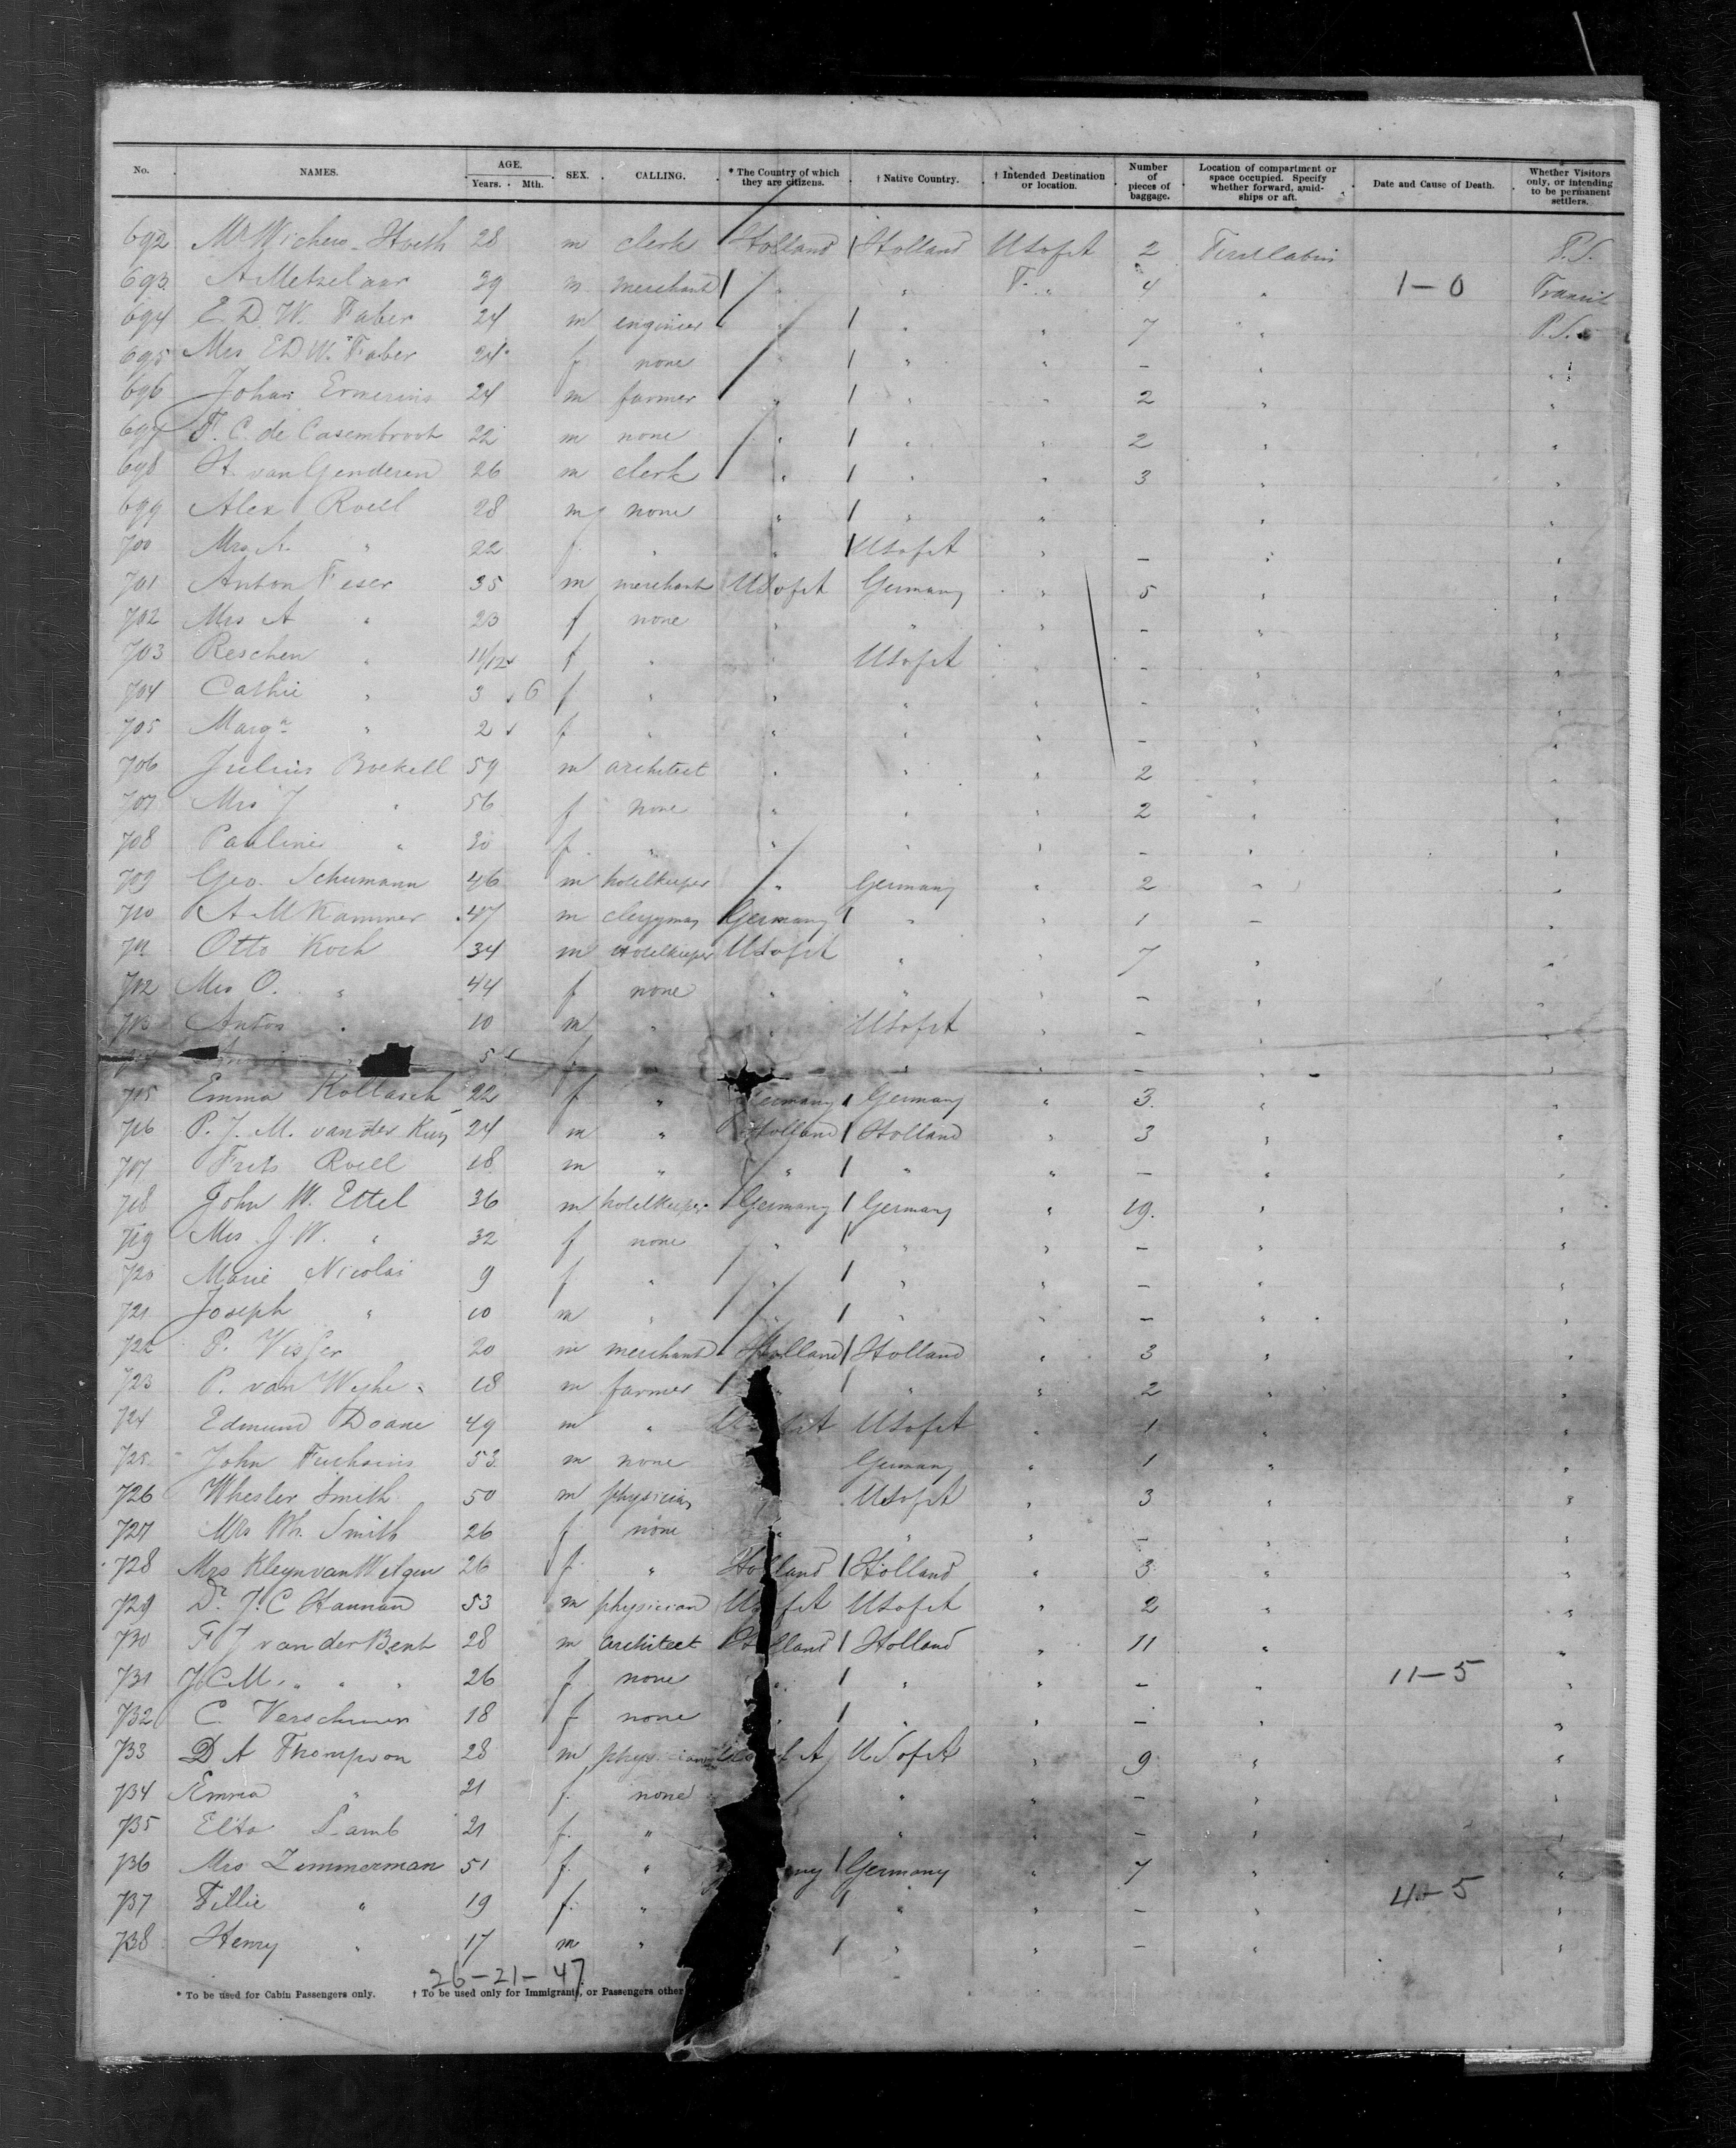 No. NAMES. AGE. Years. Mth. SEX. CALLING. * The Country of which they are citizens. † Native Country. † Intended Destination or location. Number of pieces of baggage. Location of compartment or space occupied. Specify whether forward, amidships or aft. Date and Cause of Death. Whether Visitors only, or intending to be permanent settlers.
692 Mr Wichers Hoeth 28 m clerk Holland Holland US of A 2 First Cabin P.S.
693 A Metzelaar 39 m merchant " " T. " 4 " 1-0 Transit
694 E. D. W. Faber 24 m engineer " " " 7 " P.S.
695 Mrs E D W. Faber 24 f none " " " - " "
696 Johan Ermerins 24 m farmer " " " 2 " "
697 F. C. de Casembroot 22 m none " " " 2 " "
698 H. van Genderen 26 m clerk " " " 3 " "
699 Alex Roell 28 m none " " " " "
700 Mrs A. " 22 f " " US of A " - " "
701 Anton Feser 35 m merchant US of A Germany " 5 " "
702 Mrs A " 23 f none " " " - " "
703 Reschen " 11/12 f " " US of A " - " "
704 Cathie " 3 6 f " " " " - " "
705 Marga " 2 f " " " " - " "
706 Julius Boekell 59 m architect " " " 2 " "
707 Mrs J " 56 f none " " " 2 " "
708 Pauline " 30 f " " " " - " "
709 Geo. Schumann 46 m hotelkeeper " Germany " 2 " "
710 A M Kammer 47 m clergyman Germany " " 1 " "
711 Otto Koch 34 m Hotelkeeper US of A " " 7 " "
712 Mrs O. " 44 f none " " " - " "
713 Anton " 10 m " " US of A " - " "
5 f " " - " "
715 Emma Kollasch 22 f " Germany Germany " 3 " "
716 P. J. M. van der Kuy 24 m " Holland Holland " 3 " "
717 Frits Roell 18 m " " " " - " "
718 John W. Ettel 36 m hotelkeeper Germany Germany " 19. " "
719 Mrs. J. W. " 32 f none " " " - " "
720 Marie Nicolai 9 f " " " " - " "
721 Joseph " 10 m " " " " - " "
722 P. Visser 20 m merchant Holland Holland " 3 " "
723 P. van Weyhe 18 m farmer " " 2 " "
724 Edmund Doane 49 m " US of A " 1 " "
725 John Fuchsius 53 m none Germany " 1 " "
726 Whesler Smith 50 m physician US of A " 3 " "
727 Mrs Wh. Smith 26 f none " " " - " "
728 Mrs Kleyn van Welgen 26 f. " Holland Holland " 3 " "
729 Dr. J. C Hannan 53 m physician US of A US of A " 2 " "
730 F J van der Bent 28 m architect Holland Holland " 11 " "
731 J C M. " " " 26 f none " " " - " 11-5 "
732 C. Verschuur 18 f none " " - " "
733 D A Thompson 28 m physician US of A " 9 " "
734 Emma " 21 f. none " " - " "
735 Elta Lamb 21 f. " " " - " "
736 Mrs Zimmerman 51 f. " ny Germany " 7 " "
737 Tillie " 19 f. " " " - " 4-5 "
738 Henry " 17 m " " " " - " "
26-21-47
* To be used for Cabin Passengers only. † To be used only for Immigrants, or Passengers other